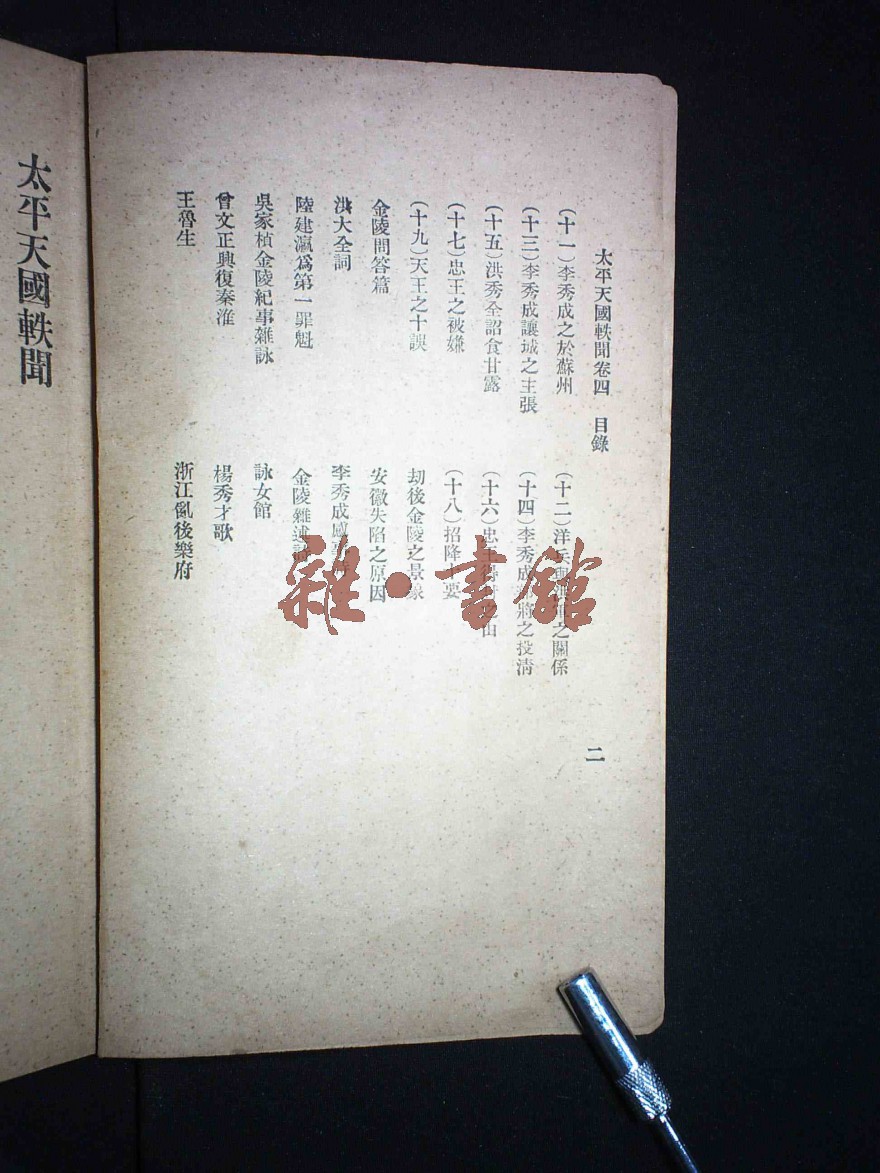 太平天國軼聞卷四　目錄
二
(十一)李秀成之於蘇州
(十二)洋兵 之關係
(十三)李秀成讓城之主張
(十四)李秀成 將之投清
(十五)洪秀全詔食甘露
(十六)忠王 山
(十七)忠王之被嫌
(十八)招降十要
(十九)天王之十誤
劫後金陵之景象
金陵問答篇
安徽失陷之原因
洪大全詞
李秀成感事詩
陸建瀛爲第一罪魁
金陵雜述詩
吳家楨金陵紀事雜詠
詠女館
曾文正興復秦淮
楊秀才歌
王魯生
浙江亂後樂府
太平天國軼聞
雜·書館